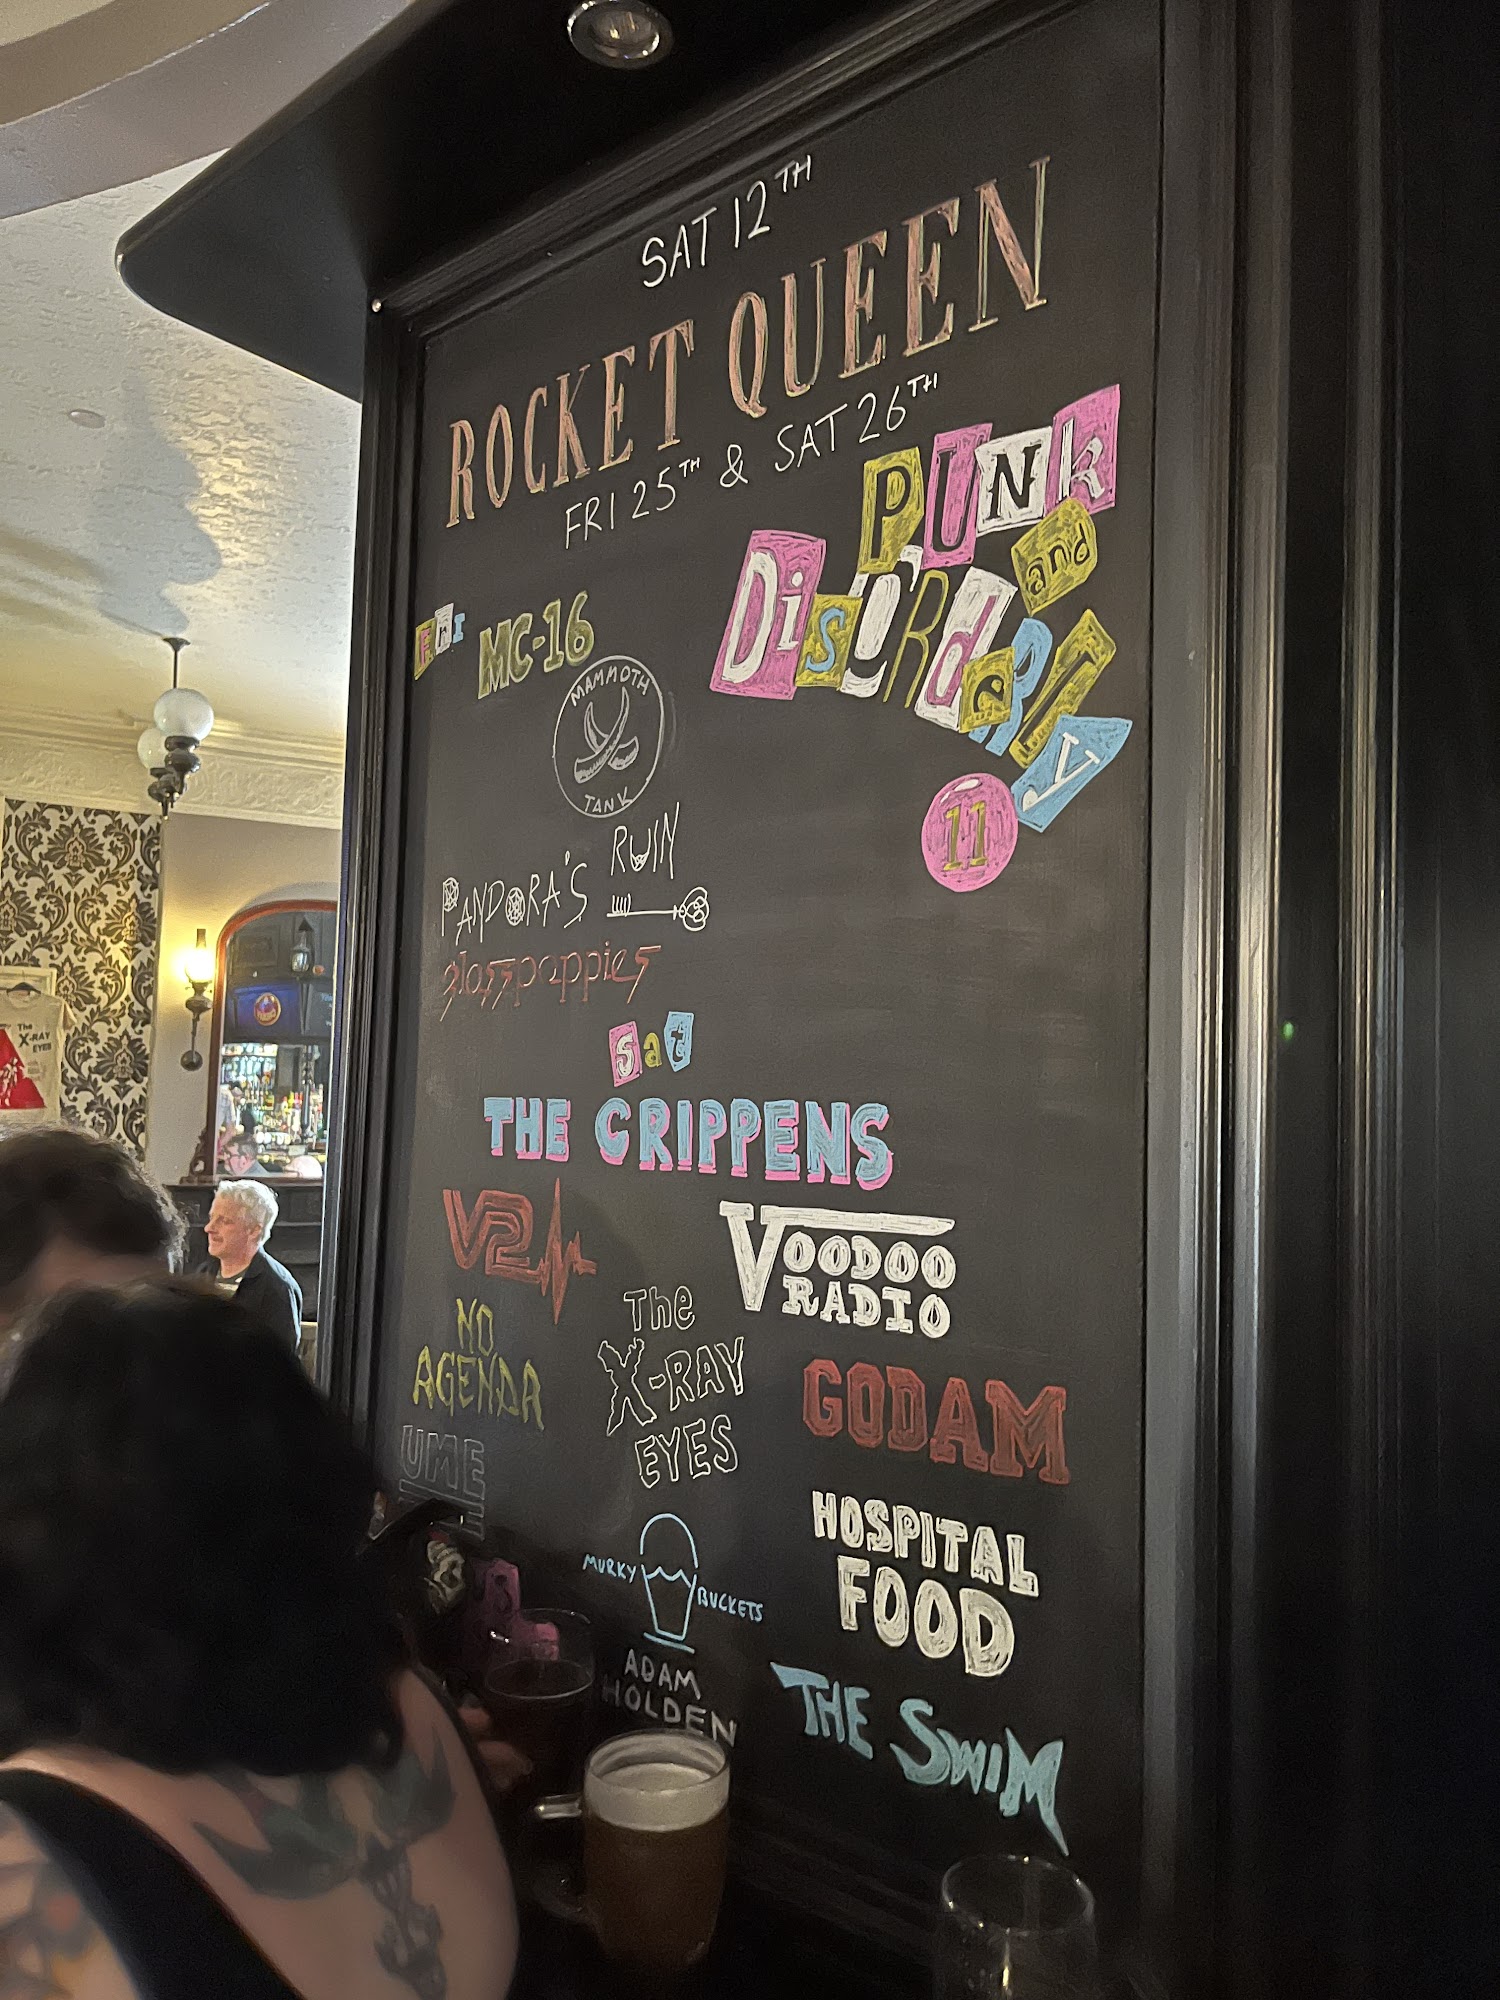 SAT 12TH
ROCKET QUEEN
FRI 25TH & SAT 26TH
PUNk
and
DisORdeRly
11
FRI
MC-16
MAMMOTH
TANK
PANDORA'S RUIN
glasspoppies
sat
THE CRIPPENS
V2
VOODOO
RADIO
NO
AGENDA
The
X-RAY
EYES
GODAM
UME
HOSPITAL
FOOD
MURKY
BUCKETS
ADAM
HOLDEN
THE SWIM
The
X-RAY
EYES